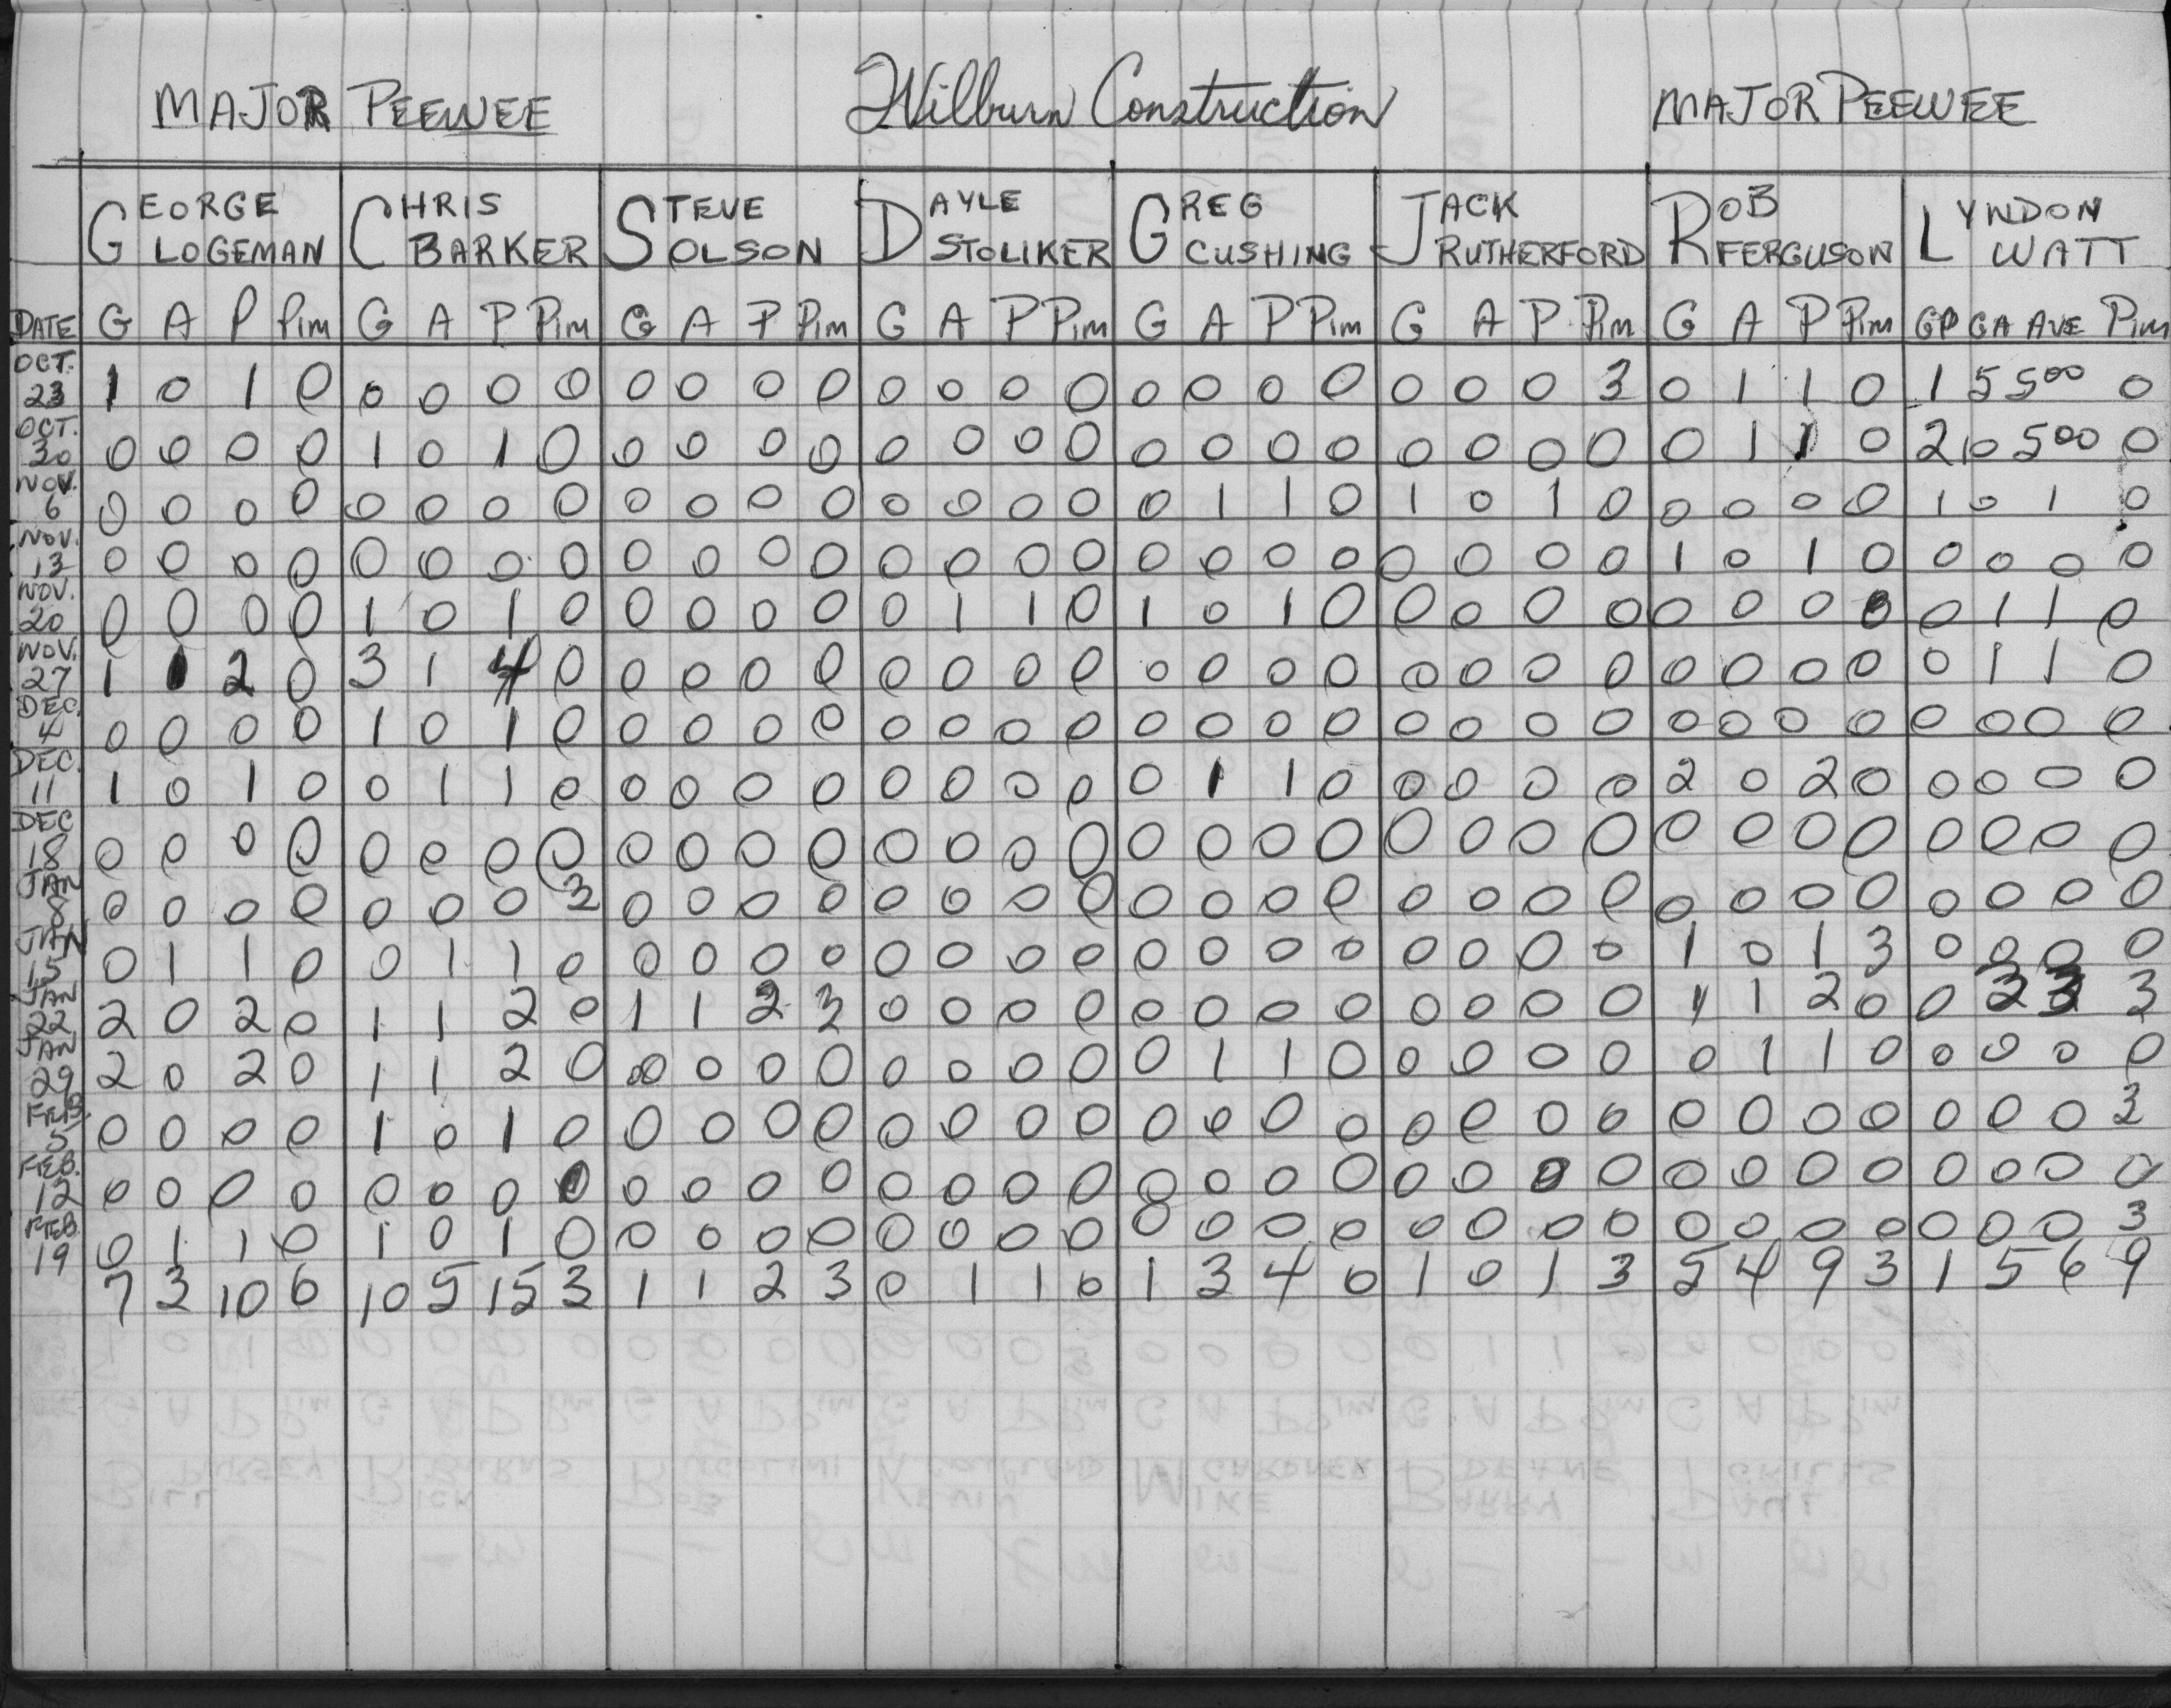 MAJOR PEEWEE Wilburn Construction MAJOR PEEWEE
GEORGE CHRIS STEVE DAYLE GREG JACK ROB LYNDON
LOGEMAN BARKER OLSON STOLIKER CUSHING RUTHERFORD FERGUSON WATT
DATE G A P Pim G A P Pim G A P Pim G A P Pim G A P Pim G A P Pim G A P Pim GP GA AVE Pim
OCT. 23 1 0 1 0 0 0 0 0 0 0 0 0 0 0 0 0 0 0 0 0 0 0 0 3 0 1 1 0 1 5 500 0
OCT. 30 0 0 0 0 1 0 1 0 0 0 0 0 0 0 0 0 0 0 0 0 0 0 0 0 0 1 1 0 2 10 500 0
NOV. 6 0 0 0 0 0 0 0 0 0 0 0 0 0 0 0 0 0 1 1 0 1 0 1 0 0 0 0 0 1 0 1 0
NOV. 13 0 0 0 0 0 0 0 0 0 0 0 0 0 0 0 0 0 0 0 0 0 0 0 0 1 0 1 0 0 0 0 0
NOV. 20 0 0 0 0 1 0 1 0 0 0 0 0 0 1 1 0 1 0 1 0 0 0 0 0 0 0 0 0 0 1 1 0
NOV. 27 1 1 2 0 3 1 4 0 0 0 0 0 0 0 0 0 0 0 0 0 0 0 0 0 0 0 0 0 0 1 1 0
DEC. 4 0 0 0 0 1 0 1 0 0 0 0 0 0 0 0 0 0 0 0 0 0 0 0 0 0 0 0 0 0 0 0 0
DEC. 11 1 0 1 0 0 1 1 0 0 0 0 0 0 0 0 0 0 1 1 0 0 0 0 0 2 0 2 0 0 0 0 0
DEC 18 0 0 0 0 0 0 0 0 0 0 0 0 0 0 0 0 0 0 0 0 0 0 0 0 0 0 0 0 0 0 0 0
JAN 8 0 0 0 0 0 0 0 3 0 0 0 0 0 0 0 0 0 0 0 0 0 0 0 0 0 0 0 0 0 0 0 0
JAN 15 0 1 1 0 0 1 1 0 0 0 0 0 0 0 0 0 0 0 0 0 0 0 0 0 1 0 1 3 0 0 0 0
JAN 22 2 0 2 0 1 1 2 0 1 1 2 3 0 0 0 0 0 0 0 0 0 0 0 0 1 1 2 0 0 3 3 3
JAN 29 2 0 2 0 1 1 2 0 00 0 0 0 0 0 0 0 0 1 1 0 0 0 0 0 0 1 1 0 0 0 0 0
FEB. 5 0 0 0 0 1 0 1 0 0 0 0 0 0 0 0 0 0 0 0 0 0 0 0 0 0 0 0 0 0 0 0 3
FEB. 12 0 0 0 0 0 0 0 0 0 0 0 0 0 0 0 0 0 0 0 0 0 0 0 0 0 0 0 0 0 0 0 0
FEB. 19 0 1 1 0 1 0 1 0 0 0 0 0 0 0 0 0 0 0 0 0 0 0 0 0 0 0 0 0 0 0 0 3
7 3 10 0 10 5 15 3 1 1 2 3 0 1 1 0 1 3 4 0 1 0 1 3 5 4 9 3 1 5 6 9